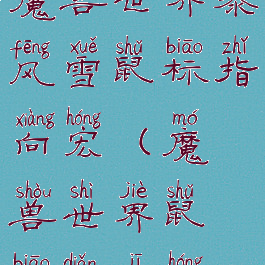 魔兽世界暴
fēng xuě shǔ biāo zhǐ
风雪鼠标指
xiàng hóng mó
向宏（魔
shòu shì jiè shǔ
兽世界鼠
biāo diǎn jī hóng